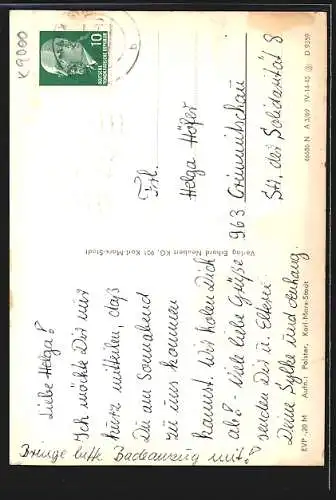 K9000
10
DEUTSCHE
DEMOKRATISCHE REPUBLIK
Liebe Helga!
Ich möchte Dir nur
kurz mitteilen, daß
Du am Sonnabend
zu uns kommen
kannst. Wir holen Dich
ab! - Viele liebe Grüße
senden Dir u. Eltern
Deine Sylke und Anhang.
Bringe bitte Badeanzug mit!
Frl.
Helga Höfer
963 Crimmitschau
Str. der Solidarität 8
Verlag Erhard Neubert KG, 901 Karl-Marx-Stadt
46686 N A 3/69 IV-14-45 D 9259
EVP -,20 M Aufn.: Polster, Karl-Marx-Stadt